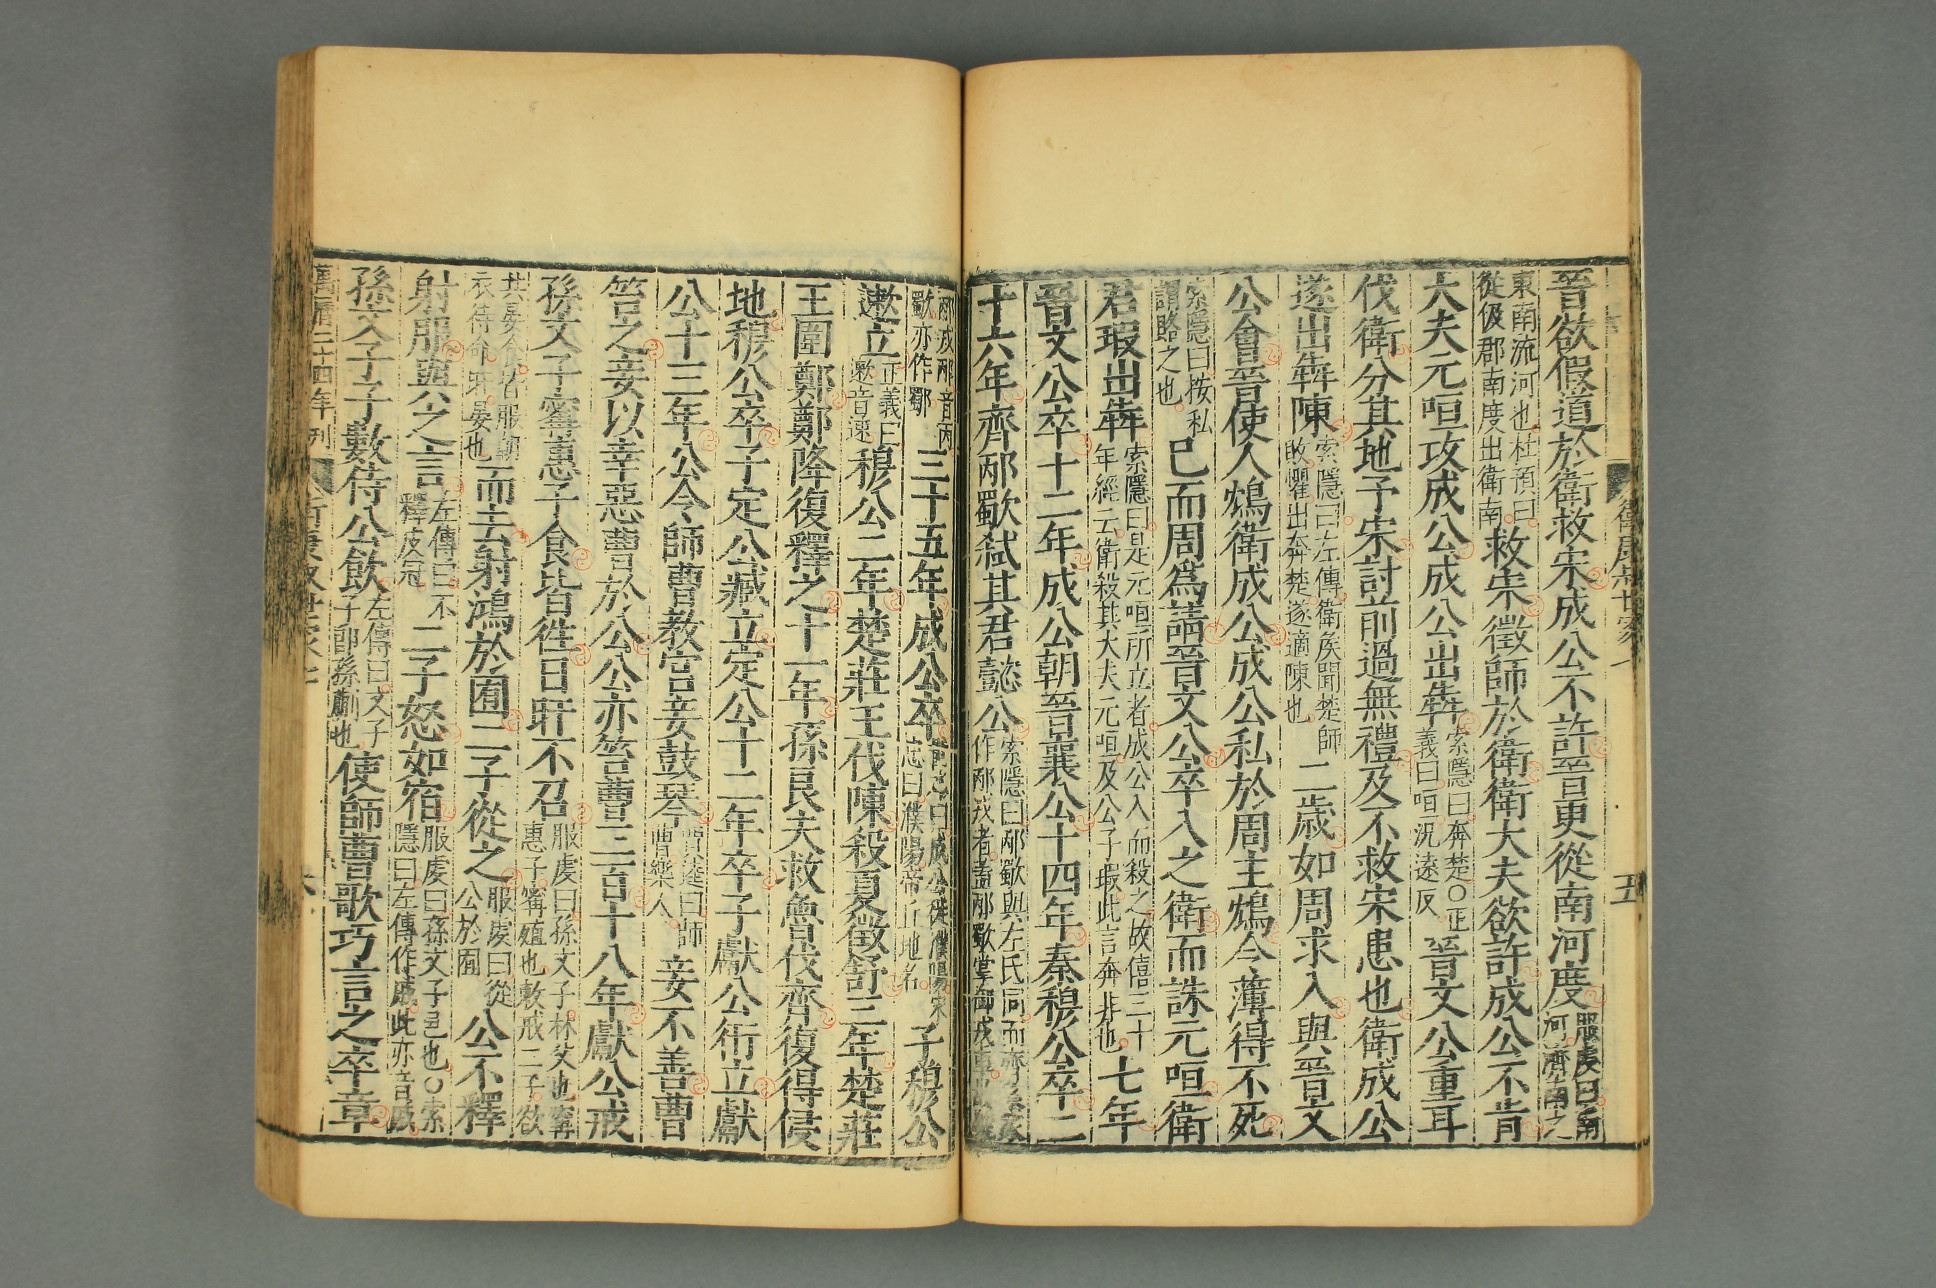 晉欲假道於衛救宋成公不許晉更從南河度服虔曰南河濟南之
東南流河也杜預曰從汲郡南度出衛南救宋徵師於衛衛大夫欲許成公不肯
大夫元咺攻成公成公出犇索隱曰奔楚○正義曰咺況遠反晉文公重耳
伐衛分其地予宋討前過無禮及不救宋患也衛成公
遂出犇陳索隱曰左傳衛侯聞楚師敗懼出奔楚遂適陳也二歲如周求入與晉文
公會晉使人鴆衛成公成公私於周主鴆令薄得不死
索隱曰按私謂賂之也已而周爲請晉文公卒入之衛而誅元咺衛
君瑕出犇索隱曰是元咺所立者成公入而殺之故僖三十年經云衛殺其大夫元咺及公子瑕此言奔非也七年
晉文公卒十二年成公朝晉襄公十四年秦穆公卒二
十六年齊邴歜弑其君懿公索隱曰邴歜與左氏同而齊系家作邴戎者蓋邴歜掌御戎車
邴戎邴音丙歜亦作鄐三十五年成公卒曰成公徙濮陽宋忠曰濮陽帝丘地名子穆公
遬立正義曰遬音速穆公二年楚莊王伐陳殺夏徵舒三年楚莊
王圍鄭鄭降復釋之十一年孫良夫救魯伐齊復得侵
地穆公卒子定公臧立定公十二年卒子獻公衎立獻
公十三年公令師曹教宮妾鼓琴賈逵曰師曹樂人妾不善曹
笞之妾以幸惡曹於公公亦笞曹三百十八年獻公戒
孫文子甯惠子食皆往日旰不召服虔曰孫文子林父也甯惠子甯殖也敕戒二子欲
共晏食皆服朝衣待命旰晏也而去射鴻於囿二子從之服虔曰從公於囿公不釋
射服與之言左傳曰不釋皮冠二子怒如宿服虔曰孫文子邑也○索隱曰左傳作戚此亦音戚
孫文子子數侍公飲左傳曰文子子卽孫蒯也使師曹歌巧言之卒章